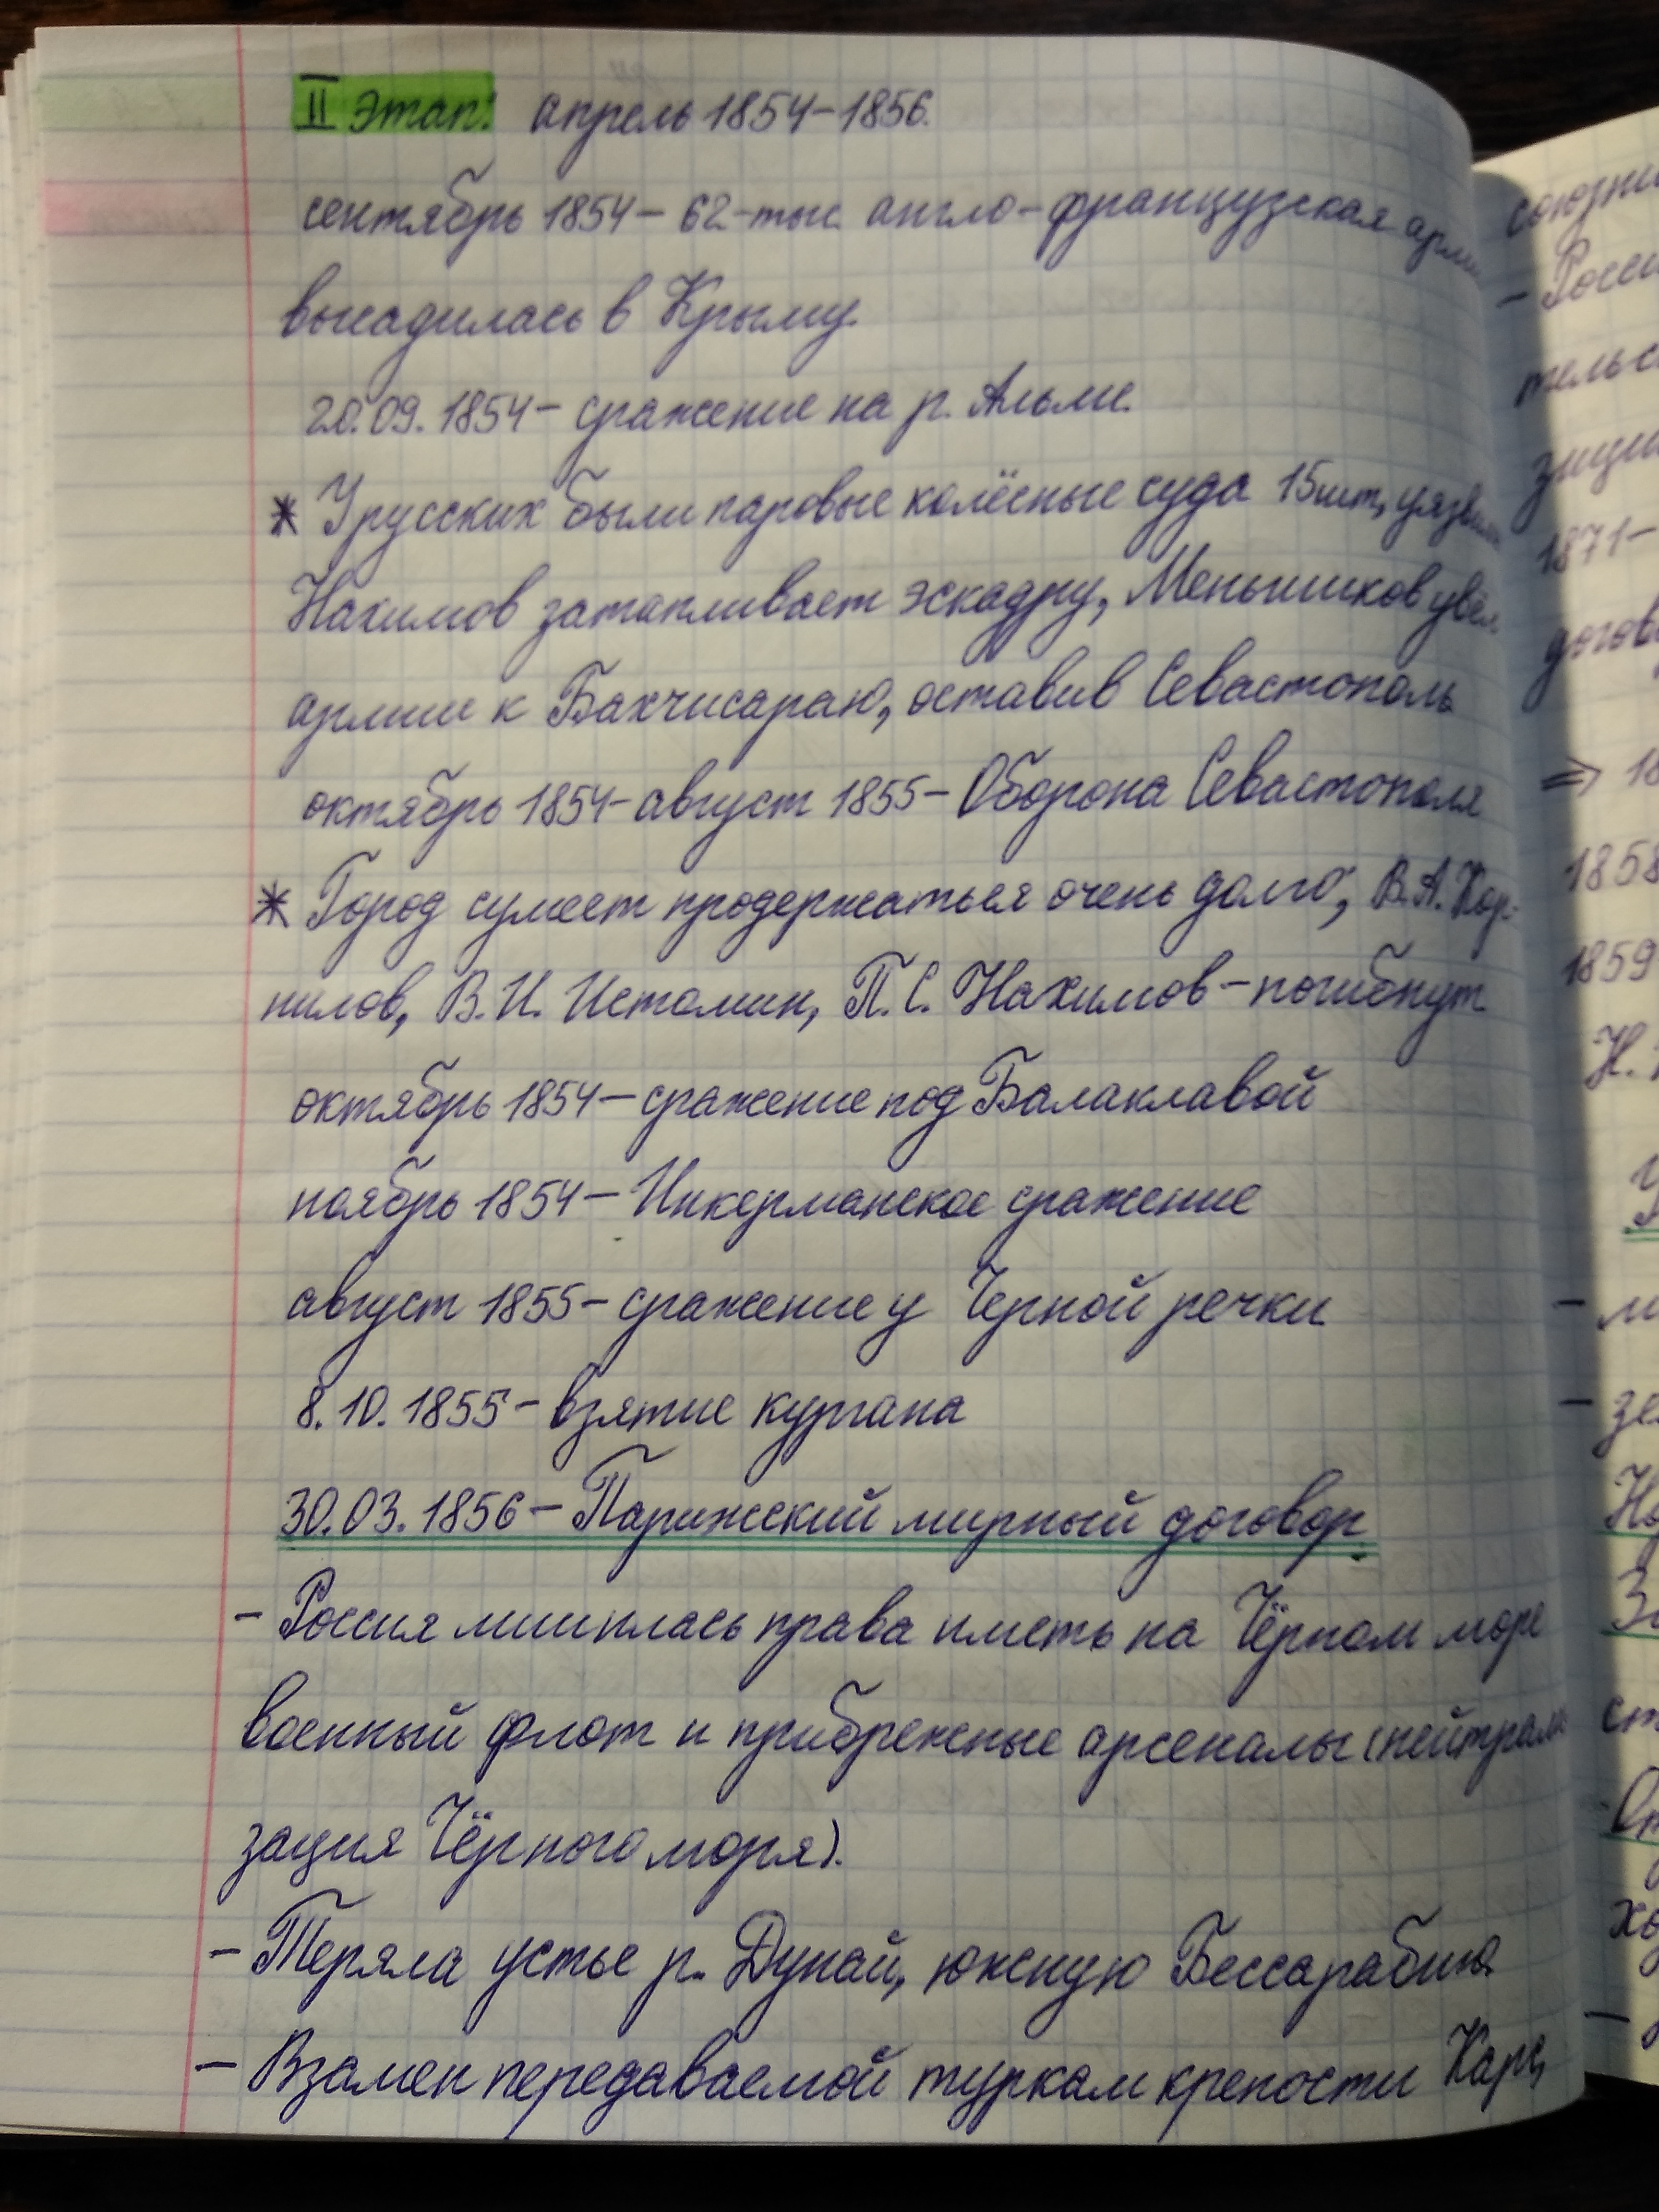 II этап: апрель 1854-1856.
сентябрь 1854 - 62-тыс. англо-французская
высадилась в Крыму.
20.09.1854 - сражение на р. Альме.
* У русских были паровые колёсные суда 15шт,
Нахимов затапливает эскадру, Меньшиков увёл
армии к Бахчисараю, оставив Севастополь
октябрь 1854 - август 1855 - Оборона Севастополя
* Город сумеет продержаться очень долго, В.А. Кор-
нилов, В.И. Истомин, П.С. Нахимов - погибнут
октябрь 1854 - сражение под Балаклавой
ноябрь 1854 - Инкерманское сражение
август 1855 - сражение у Черной речки
8.10.1855 - взятие кургана
30.03.1856 - Парижский мирный договор
- Россия лишилась права иметь на Чёрном море
военный флот и прибрежные арсеналы (нейтрали
зация Чёрного моря).
- Теряла устье р. Дунай, южную Бессарабию.
- Взамен передаваемой туркам крепости Карс,
1871-
1858
1859